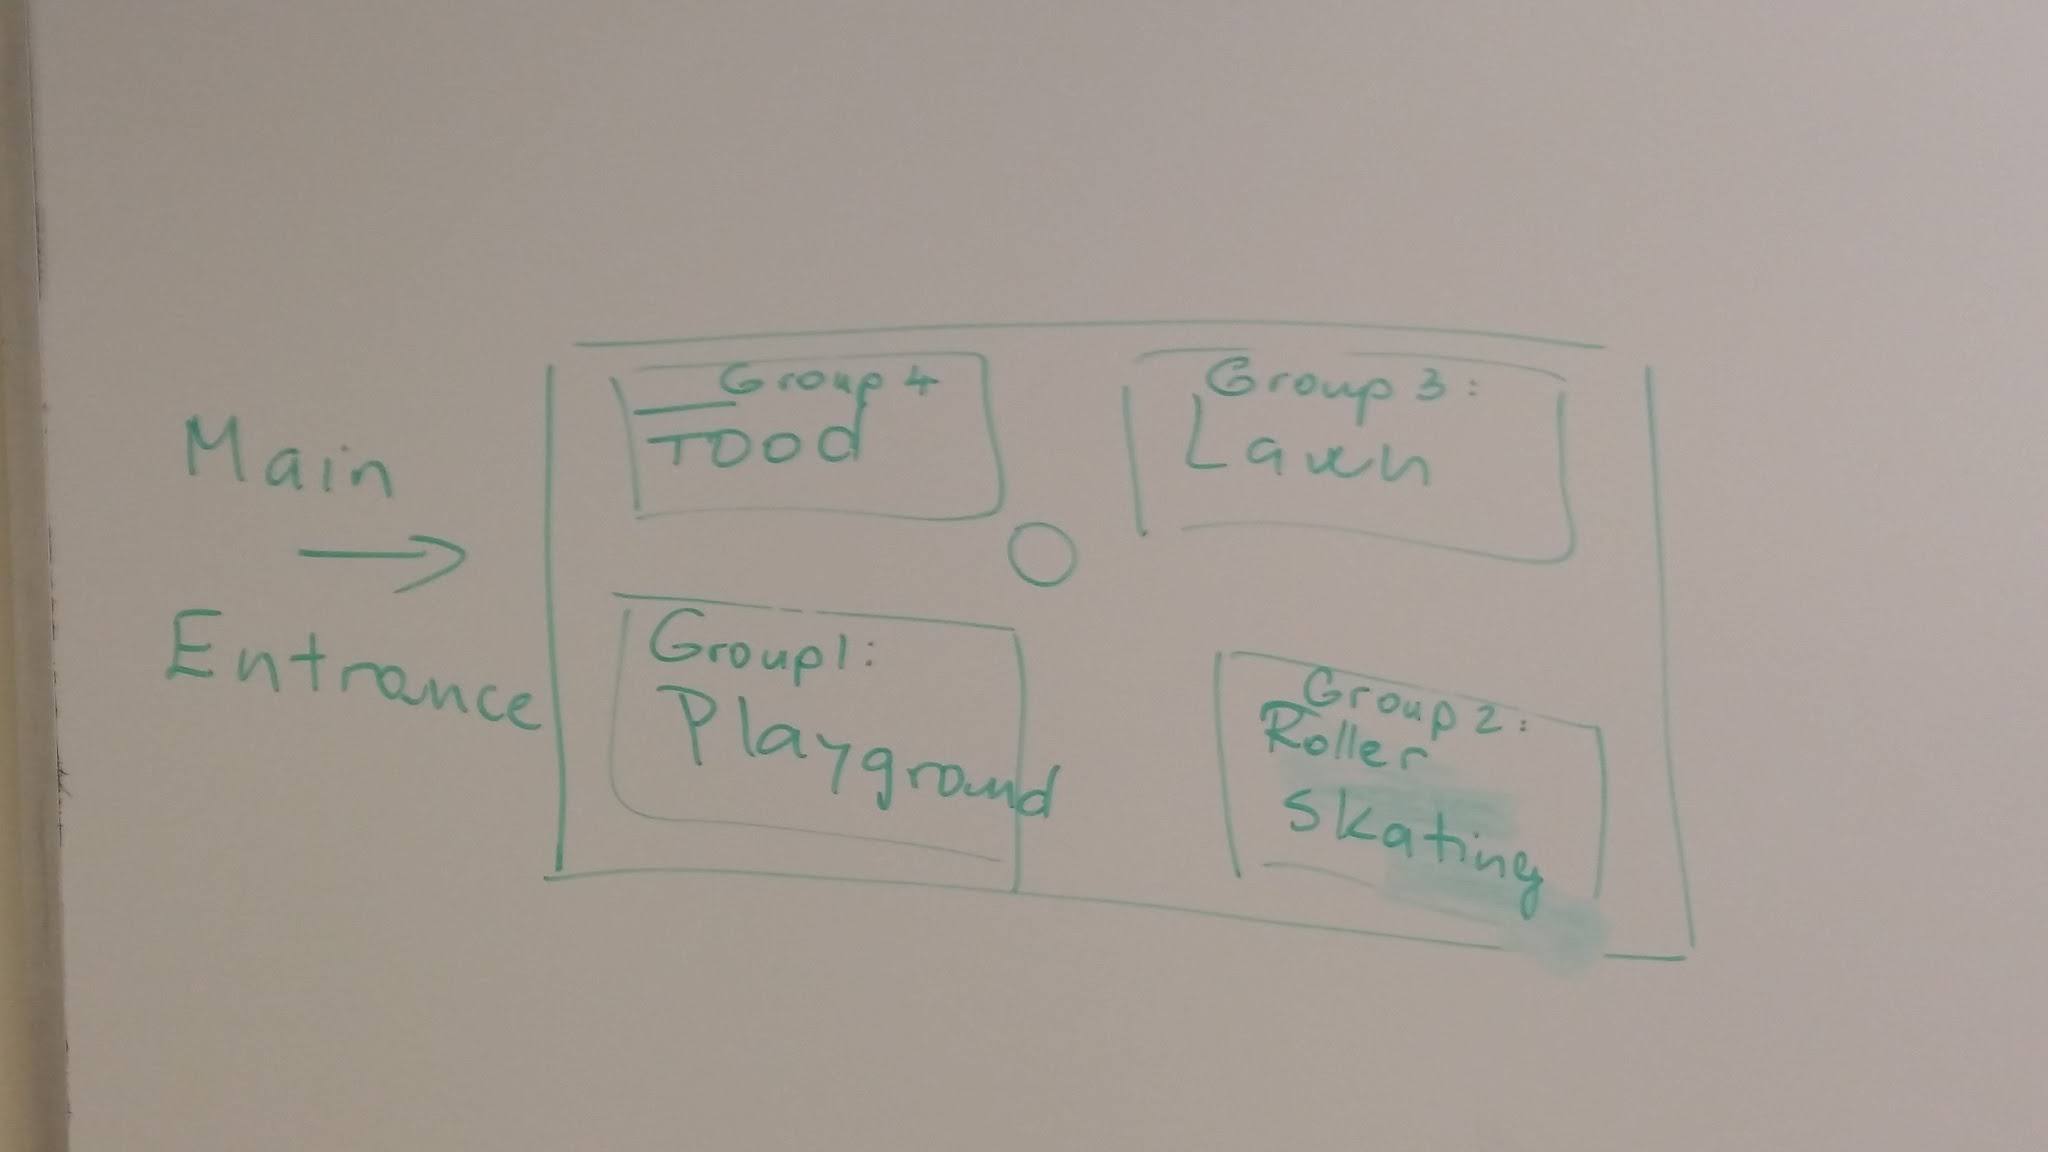 Main
Entrance
Group 4
Food
Group 3:
Lawn
Group 1:
Playground
Group 2:
Roller
Skating